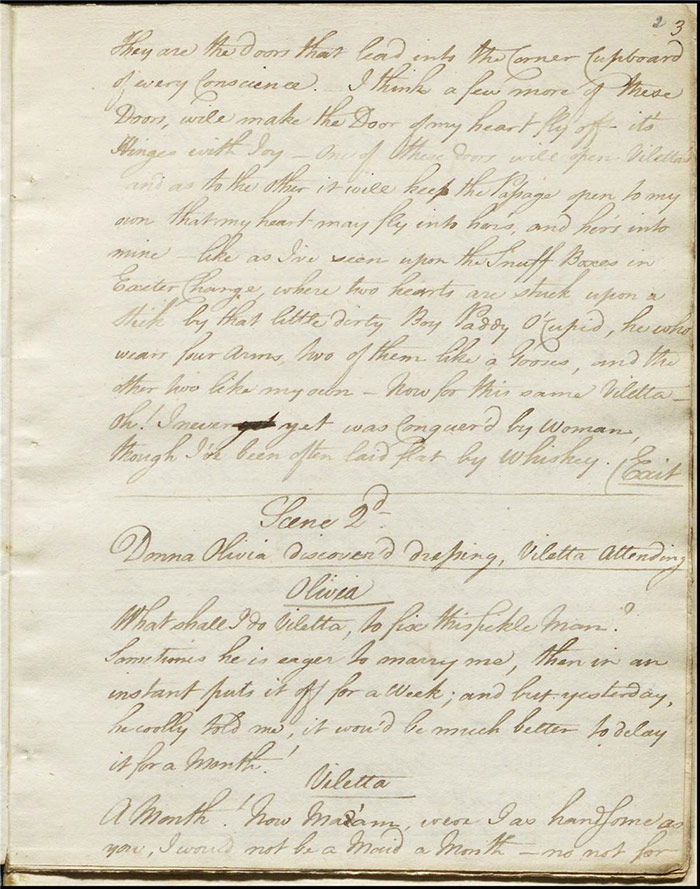 2 3
They are the Doors that lead into the Corner Cupboard
of every Conscience. I think a few more of these
Doors, will make the Door of my heart fly off it's
Hinges with Joy – one of these doors will open Viletta's
and as to the other it will keep the Passage open to my
own that my heart may fly into hers, and her's into
mine – like as I've seen upon the Snuff Boxes in
Exeter Change, where two hearts are stuck upon a
stick by that little dirty Boy Paddy O'Cupid, he who
wears four Arms, two of them like a Gooses, and the
other two like my own – Now for this same Viletta –
oh! I never yet yet was Conquer'd by Woman,
though I've been often laid flat by Whiskey. (Exit
Scene 2d.
Donna Olivia discover'd dressing, Viletta Attending
Olivia
What shall I do Viletta, to fix this fickle Man?
Sometimes he is eager to marry me, then in an
instant puts it off for a Week; and but yesterday,
he coolly told me, it wou'd be much better to delay
it for a Month!
Viletta
A Month! Now Ma'am, were I as handsome as
you, I would not be a Maid a Month – no not for